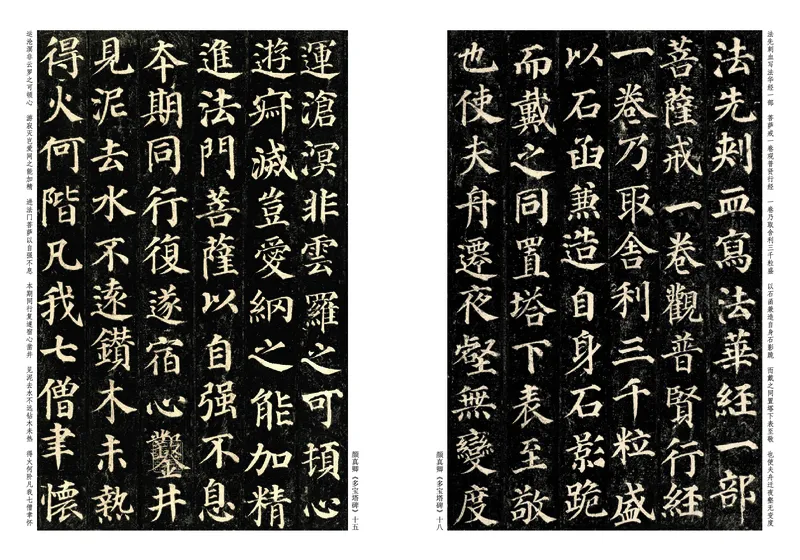 法先刺血写法华经一部　菩萨戒一卷观普贤行经　一卷乃取舍利三千粒盛　以石函兼造自身石影跪　而戴之同置塔下表至敬　也使夫舟过夜壑无变度
法先刺血寫法華經一部
菩薩戒一卷觀普賢行經
一卷乃取舍利三千粒盛
以石函兼造自身石影跪
而戴之同置塔下表至敬
也使夫舟遷夜壑無變度
颜真卿《多宝塔碑》十八
颜真卿《多宝塔碑》十五
運滄溟非雲羅之可頓心
遊寂滅豈愛網之能加精
進法門菩薩以自强不息
夲期同行復遂宿心鑿井
見泥去水不遠鑽木未熱
得火何階凡我七僧聿懷
运沧溟非云罗之可顿心　游寂灭岂爱网之能加精　进法门菩萨以自强不息　本期同行复遂宿心凿井　见泥去水不远钻木未热　得火何阶凡我七僧聿怀